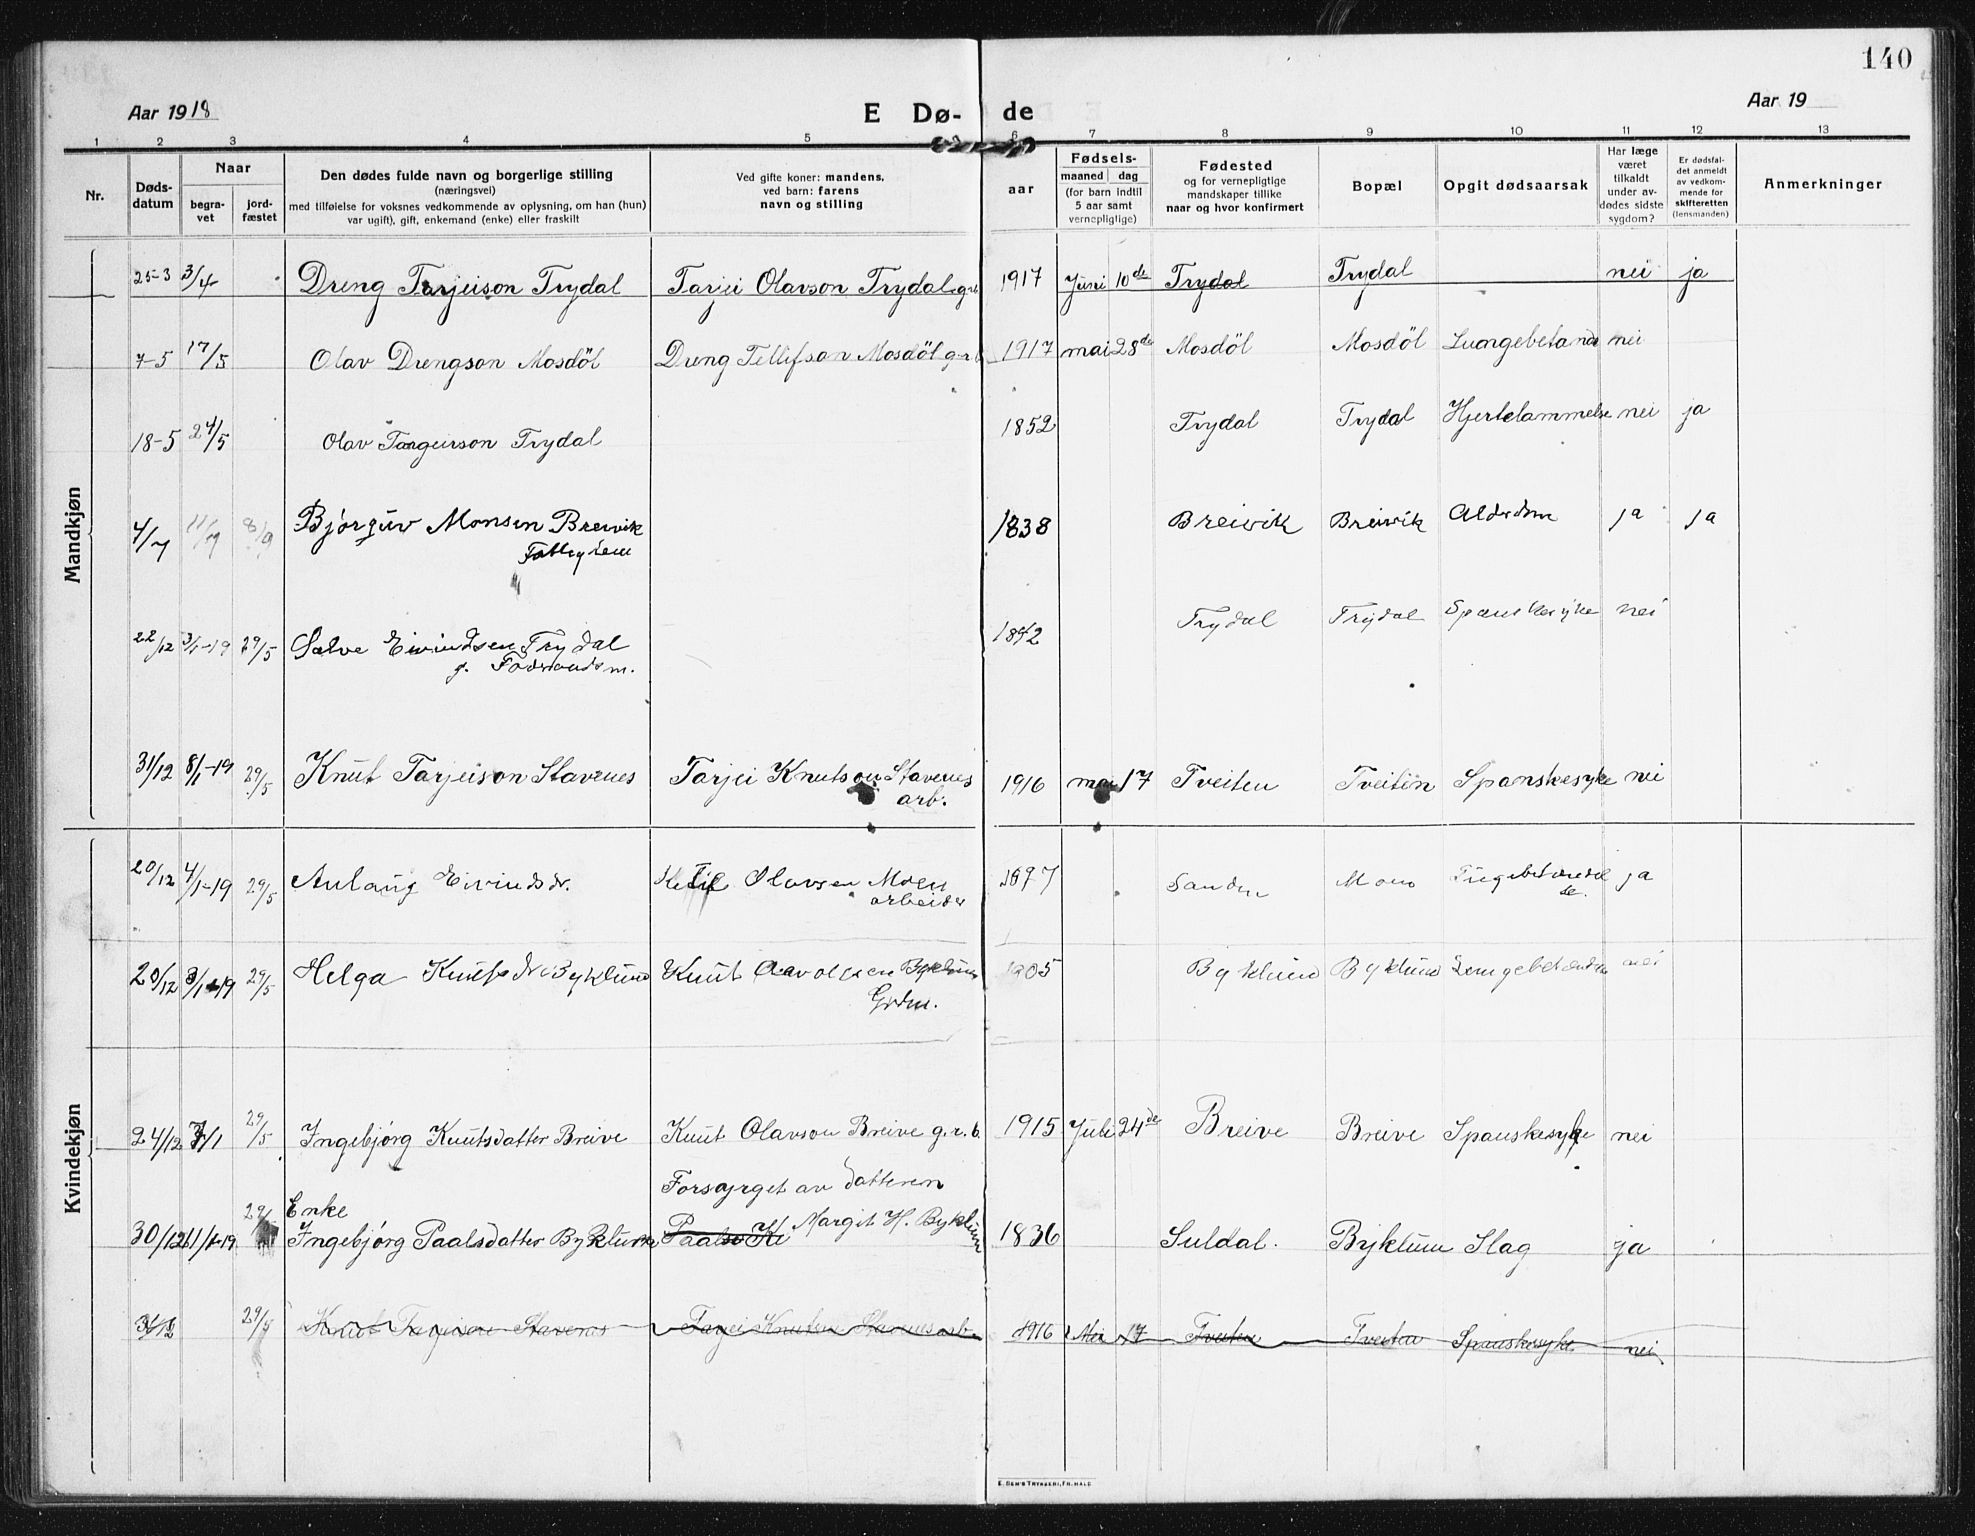 140
Aar 1918
E Dø-
de
Aar 19
1 2 3 4 5 6 7 8 9 10 11 12 13
Nr.
Døds-
datum
Naar
begra-
vet
jord-
fæstet
Den dødes fulde navn og borgerlige stilling
(næringsvei)
med tilføielse for voksnes vedkommende av oplysning, om han (hun)
var ugift), gift, enkemand (enke) eller fraskilt
Ved gifte koner: mandens,
ved barn: farens
navn og stilling
aar
Fødsels-
maaned dag
(for barn indtil
5 aar samt
vernepligtige)
Fødested
og for vernepligtige
mandskaper tillike
naar og hvor konfirmert
Bopæl
Opgit dødsaarsak
Har læge
været
tilkaldt
under av-
dødes sidste
sygdom?
Er dødsfal-
det anmeldt
av vedkom-
mende for
skifteretten
(lensmanden)
Anmerkninger
Mandkjøn
25-3 3/4 Dreng Tarjeison Trydal Tarjei Olavson Trydal g.r.b 1917 Juni 10de Trydal Trydal nei ja
7-5 17/5 Olav Drengson Mosdöl Dreng Tellefson Mosdöl g.r.b 1917 mai 28de Mosdöl Mosdöl nei
18-5 24/5 Olav Targeirson Trydal 1852 Trydal Trydal Hjertelammelse nei ja
4/7 11/7 8/9 Bjórguv Monsen Breivik 1838 Breivik Breivik Alderdom ja ja
22/12 3/1-19 29/5 Salve Eivindsen Trydal Trydal Trydal Spanskesyke nei
31/12 8/1-19 29/5 Knut Tarjeison Stavenes Tarjei Knutson Stavenes 1916 mai 17 Tveiten Tveiten Spanskesyke nei
arb.
Kvindekjøn
20/12 4/1-19 29/5 Aulaug Eivindsdr. Ketil Olavsen Moen 1897 Sanden Moen ja
arbeider
20/12 3/1-19 29/5 Helga Knutsdr Byklund Knut Byklum 1905 Byklund Byklund nei
Grdm.
24/12 7/1 29/5 Ingebjørg Knutsdatter Breive Knut Olavson Breive g.r.b. 1915 Juli 24de Breive Breive Spanskesyke nei
Forsørget av datteren
29/5 Enke
30/12 11/1-19 Ingebjørg Paalsdatter Byklum Paals Ki Margit H. Byklum 1836 Suldal. Byklum Slag ja
31/12 29/5 Knut Tarjeison Stavenes Tarjei Knutsen Stavenes arb. 1916 Mai 17 Tveiten Tveiten Spanskesyke nei
E. SEM'S TRYKKERI, FR.HALD